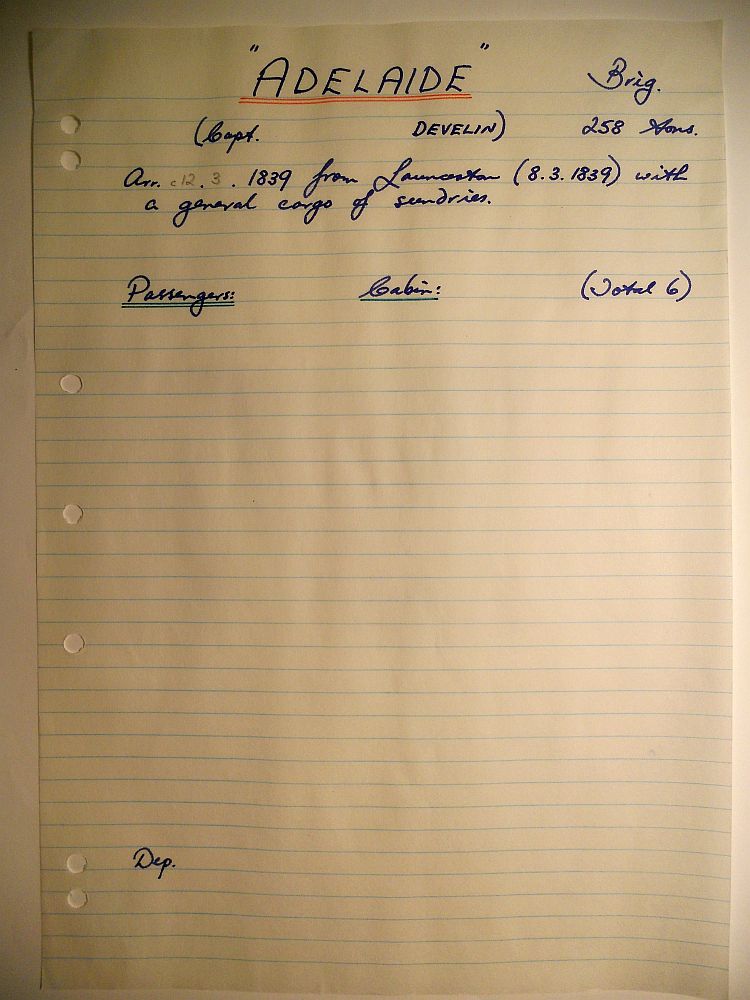 "ADELAIDE" Brig.
(Capt. DEVELIN) 258 tons.
Arr. c12.3.1839 from Launceston (8.3.1839) with
a general cargo of sundries.
Passengers: Cabin: (Total 6)
Dep.